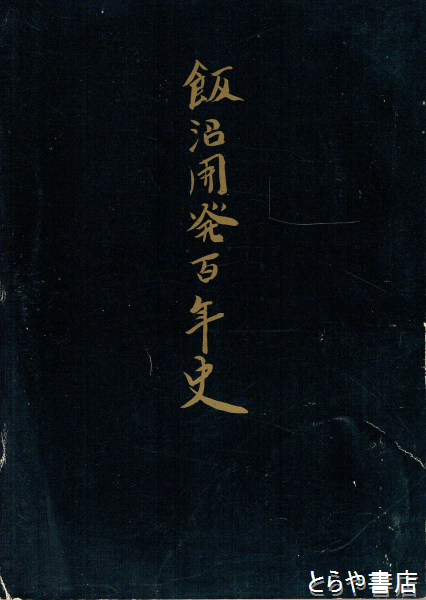 飯沼開発百年史
とらや書店